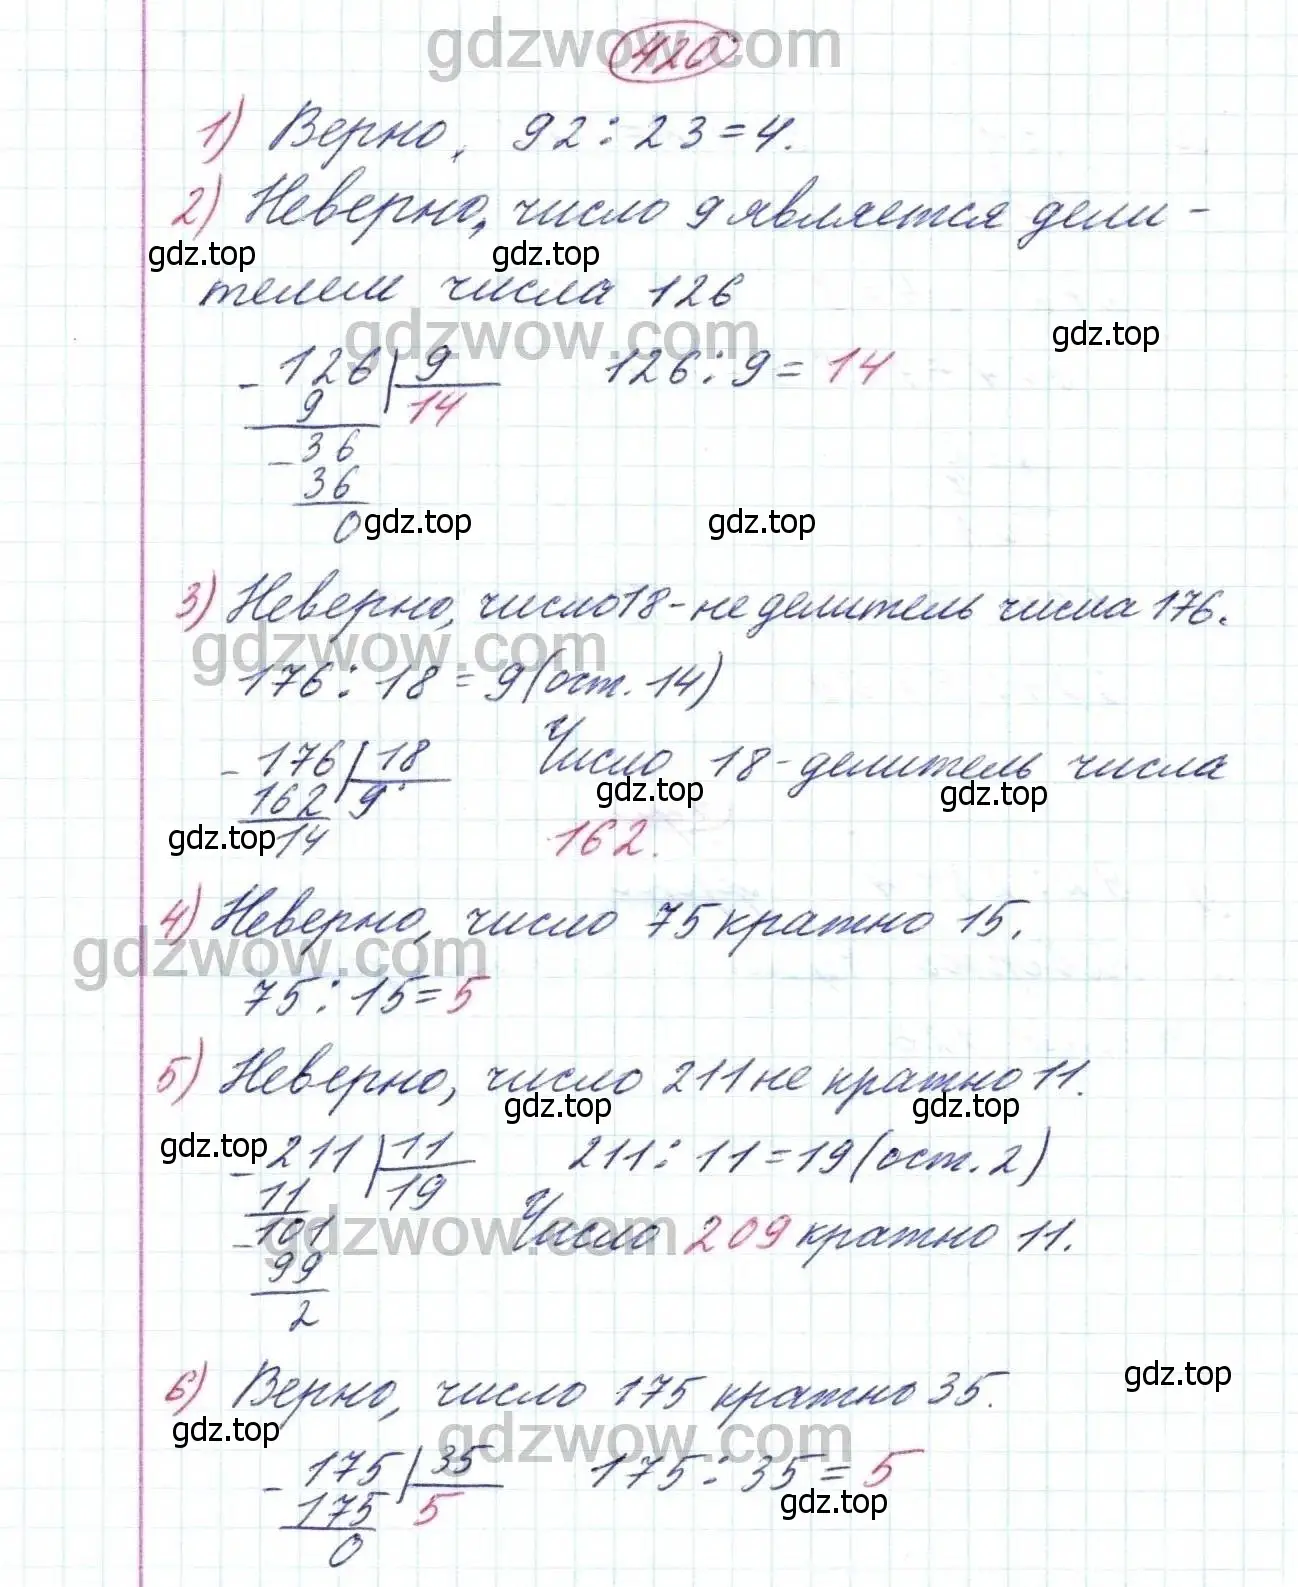 gdzwow.com
420
1) Верно, 92 : 23 = 4.
2) Неверно, число 9 является дели-
gdz.top gdz.top
телем числа 126
gdzwow.com gdz.top
- 126 | 9 126 : 9 = 14
9 14
- 36
36
0 gdz.top gdz.top
3) Неверно, число 18 - не делитель числа 176.
gdzwow.com
176 : 18 = 9 (ост. 14)
- 176 | 18 Число 18 - делитель числа
162 9 gdz.top gdz.top
gdz.top 14 162.
4) Неверно, число 75 кратно 15.
gdzwow.com
75 : 15 = 5
5) Неверно, число 211 не кратно 11.
gdz.top gdz.top
gdz.top - 211 | 11 211 : 11 = 19 (ост. 2)
11 19
- 101 gdzwow.com Число 209 кратно 11.
99
2
6) Верно, число 175 кратно 35. gdz.top
gdz.top gdzwow.com
- 175 | 35 175 : 35 = 5
175 5 gdz.top
0